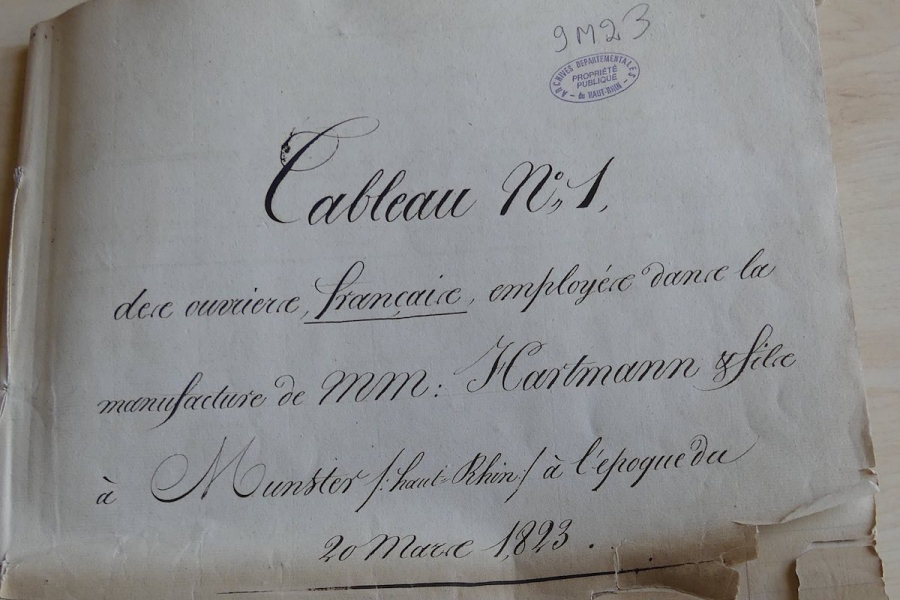 9 M 23
ARCHIVES DEPARTEMENTALES
PROPRIÉTÉ
PUBLIQUE
du HAUT-RHIN
Tableau N.° 1,
des ouvriers, français, employés dans la
manufacture de MM: Hartmann & fils
à Munster /: haut-Rhin :/ à l'epoque du
20 Mars 1,823 .